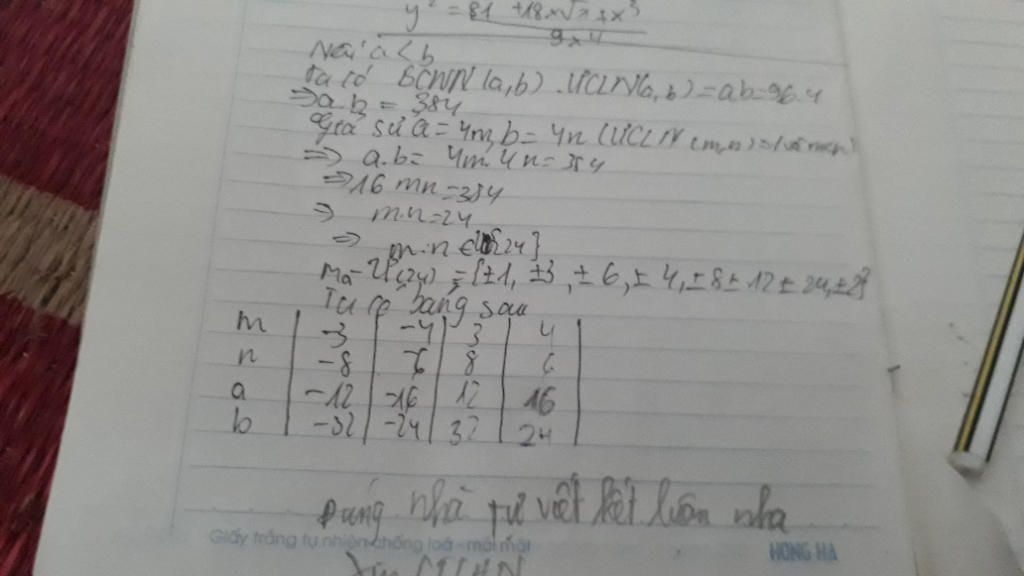 y² = 81 + 18x√x + x³
9x4
Nếu a < b
Ta có BCNN(a,b).ƯCLN(a,b) = ab = 96.4
⇒ a.b = 384
Giả sử a = 4m, b = 4n (ƯCLN(m,n) = 1
⇒ a.b = 4m.4n = 384
⇒ 16mn = 384
⇒ m.n = 24
⇒ m.n ∈ 24}
Mà Ư(24) = {±1, ±3, ±6, ±4, ±8 ±12 ± 24, ±2}
Ta có bảng sau
m -3 -4 3 4
n -8 -6 8 6
a -12 -16 12 16
b -32 -24 32 24
Đúng nhà tự viết kết luận nha
Giấy trắng tự nhiên-chống loá - mỏi mắt
HONG HA